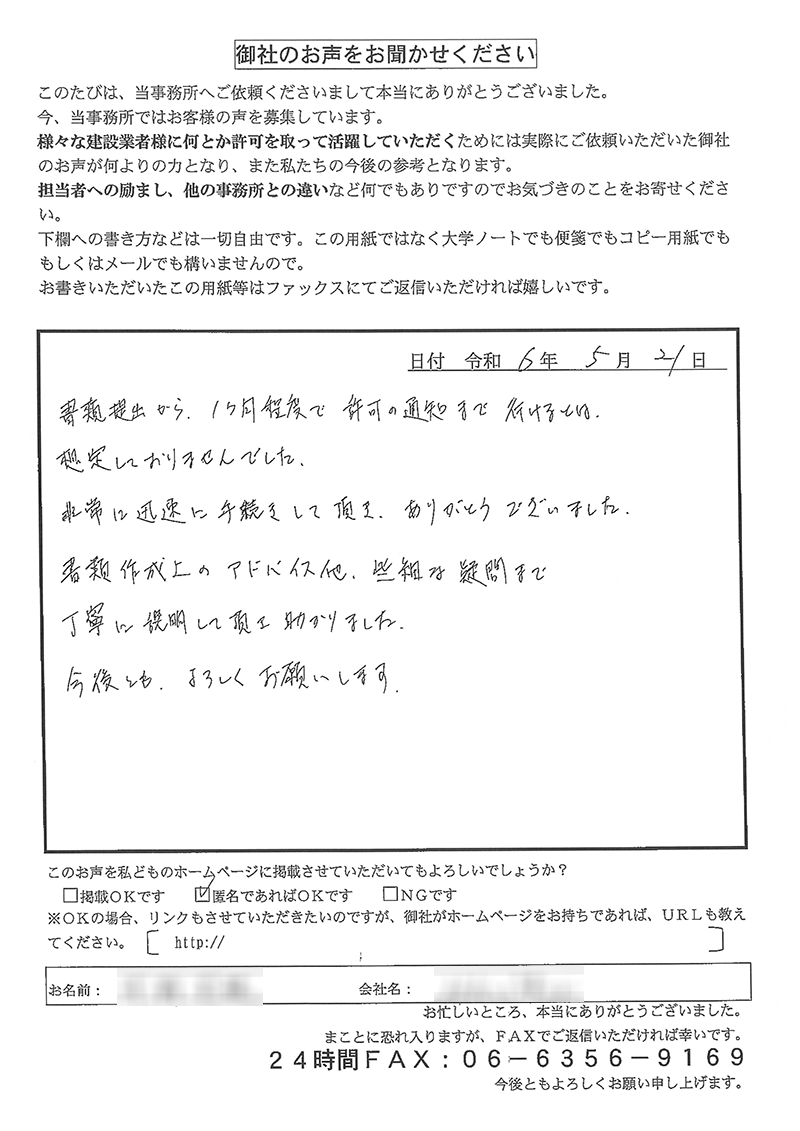 御社のお声をお聞かせください
このたびは、当事務所へご依頼くださいまして本当にありがとうございました。
今、当事務所ではお客様の声を募集しています。
様々な建設業者様に何とか許可を取って活躍していただくためには実際にご依頼いただいた御社
のお声が何よりの力となり、また私たちの今後の参考となります。
担当者への励まし、他の事務所との違いなど何でもありですのでお気づきのことをお寄せくださ
い。
下欄への書き方などは一切自由です。この用紙ではなく大学ノートでも便箋でもコピー用紙でも
もしくはメールでも構いませんので。
お書きいただいたこの用紙等はファックスにてご返信いただければ嬉しいです。
日付 令和 6年 5月 21日
書類提出から、1ヶ月程度で 許可の通知まで 行けるとは、
想定しておりませんでした。
非常に迅速に手続きをして頂き、ありがとうございました。
書類作成上のアドバイス他、些細な疑問まで
丁寧に説明して頂き助かりました。
今後とも、よろしくお願いします。
このお声を私どものホームページに掲載させていただいてもよろしいでしょうか？
□掲載OKです ☑匿名であればOKです □NGです
※OKの場合、リンクもさせていただきたいのですが、御社がホームページをお持ちであれば、URLも教え
てください。 [ http:// ]
お名前： 会社名：
お忙しいところ、本当にありがとうございました。
まことに恐れ入りますが、FAXでご返信いただければ幸いです。
24時間FAX：06－6356－9169
今後ともよろしくお願い申し上げます。